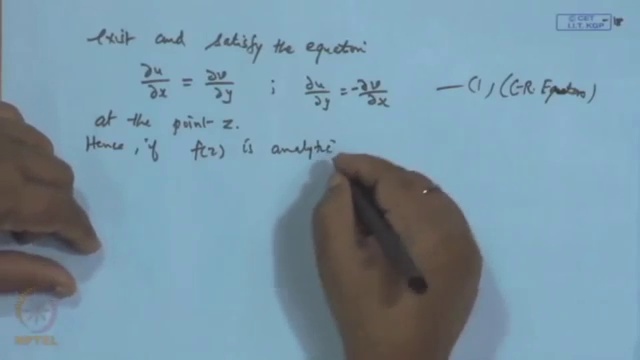 © CET
I.I.T. KGP
exist and satisfy the equation
∂u/∂x = ∂v/∂y ; ∂u/∂y = -∂v/∂x — (1) (C-R. Equations)
at the point z.
Hence, if f(z) is analytic
NPTEL